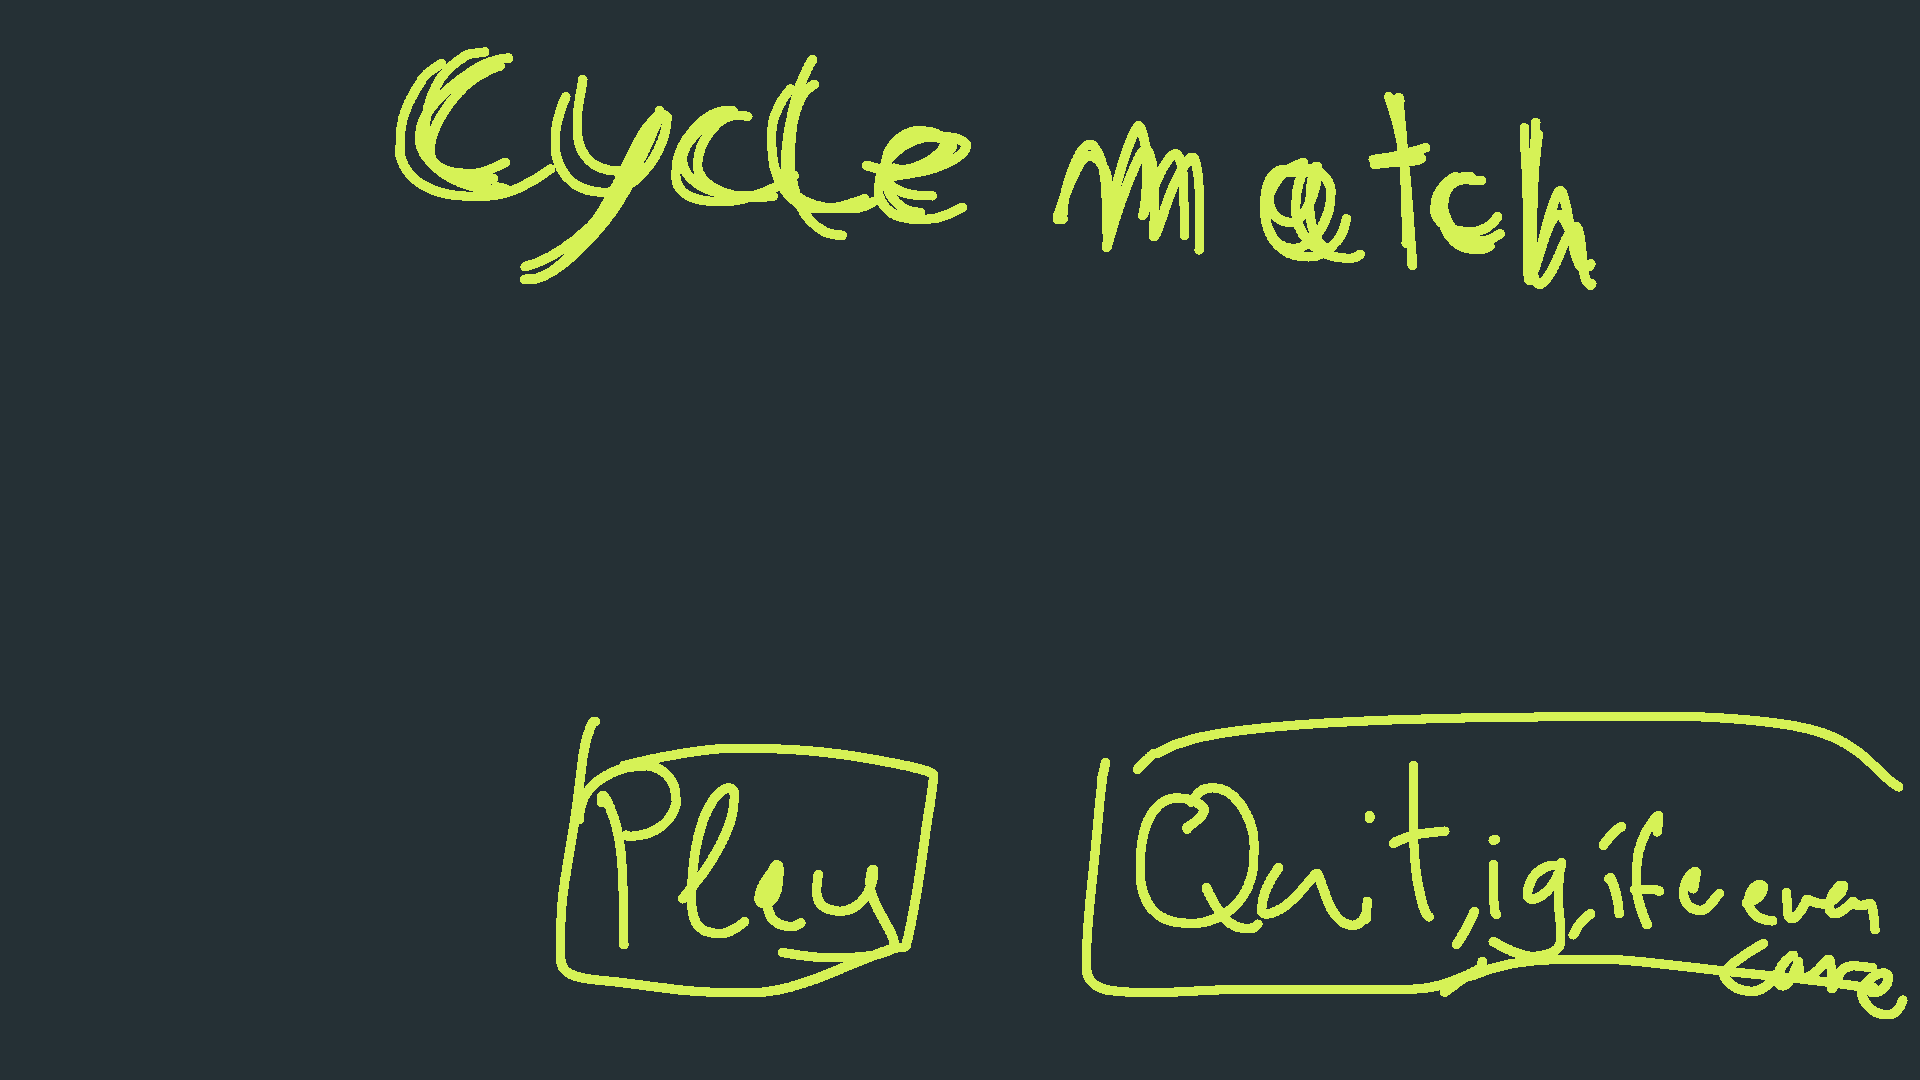 Cycle match
Play
Quit, ig, if u even
care